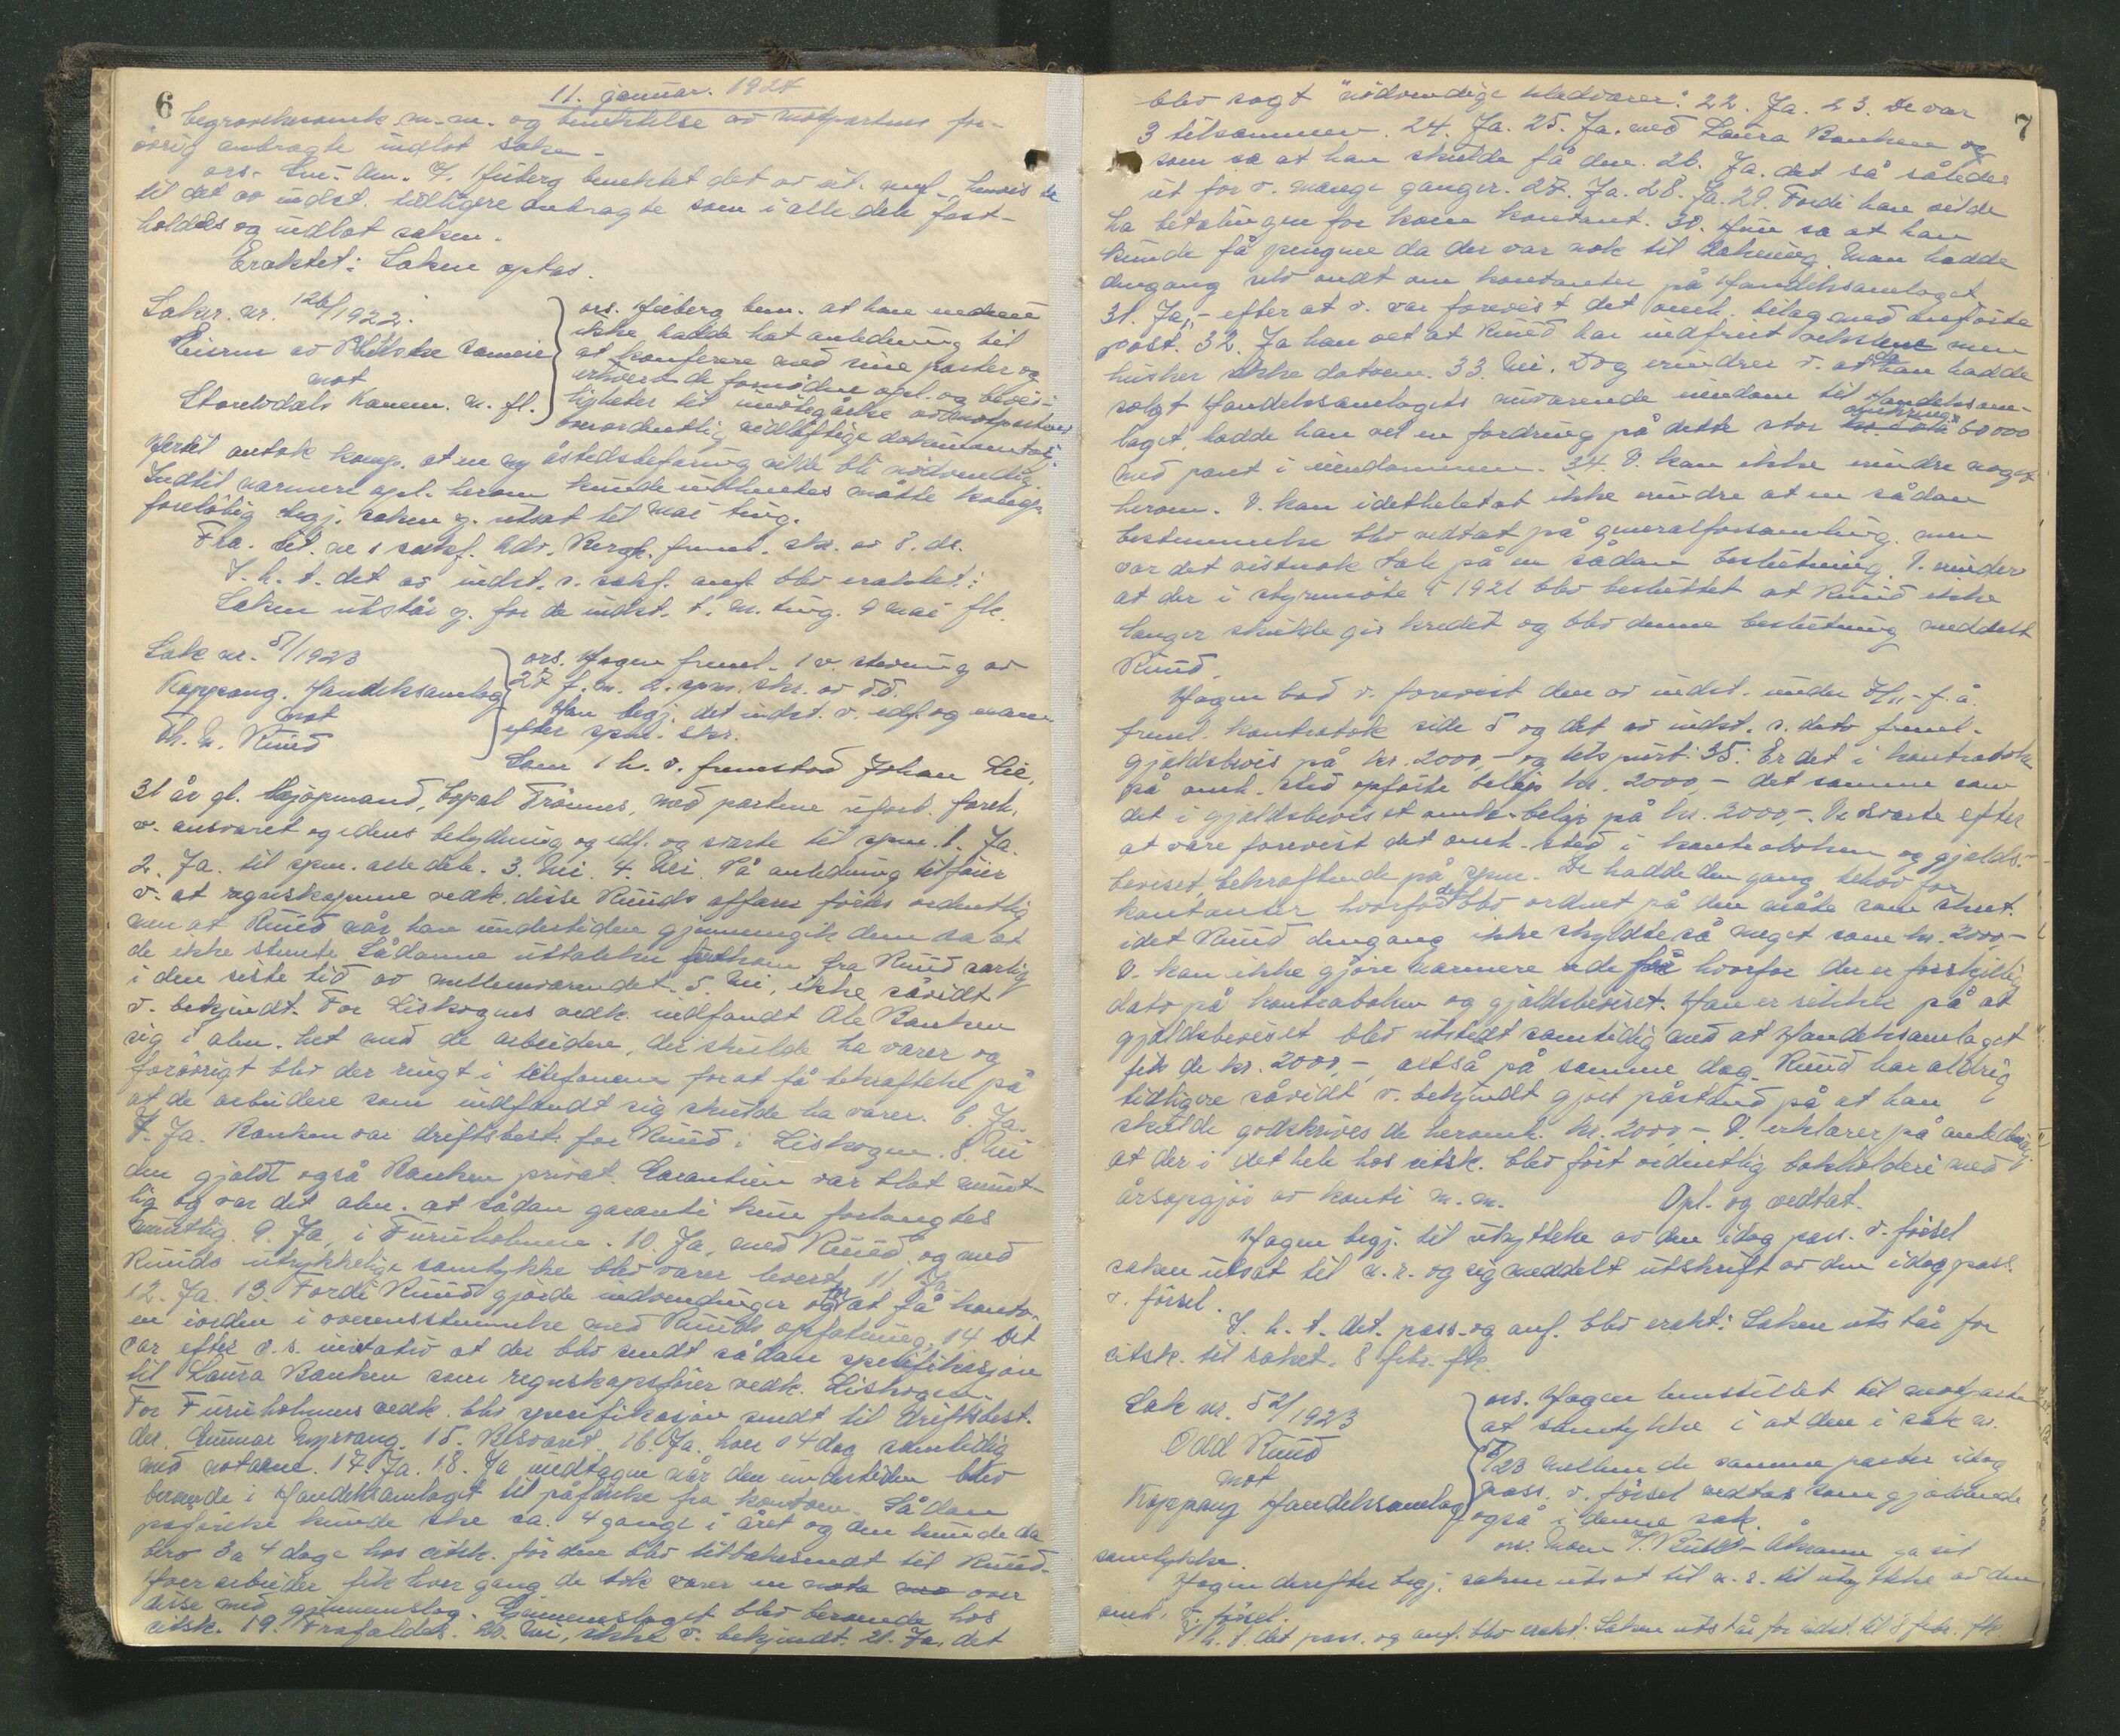 6
11. januar. 1924
begravelsesomk. m.m. og benektelse av motpartens for-
övrig anbragte indlot saken.
ors. Hieberg benektet det av cit. anf. henviste
til det av indst. tidligere anbragte som i alle dele fast-
holdtes og indlot saken.
Eraktet: Saken optas.
Saknr. nr. 126/1922.
Eierne av sameie
mot
Storelvdals Kanem. m. fl.
ors. Hieberg bem. at han endnu
ikke hadde hat anledning til
at konferere med sine parter og
erhverve de fornödne opl. og bevis-
ligheter til imötegåelse av motpartens
overordentlig vidlöftige dokumentasj.
Hertil antok komp. at en ny åstedsbefaring vilde bli nödvendig.
Indtil nærmere opl. herom kunde indhentes måtte komp.
foreløbig begj. saken g. utsat til mai ting.
Fra cit. ve s sakf. adv. Bergh. freml. skr. av 8. ds.
I. h. t. det av indst. s. sakf. anf. blev eraktet:
Saken utstår g. for de indst. t. m. ting. 9 mai fk.
Sak nr. 51/1923
Koppang. Handelssamlag
mot
Th. N. Ruud
ors. Hagen freml. 1 v. stevning av
27 f. m. 2. spm. skr. av d.d.
Han begj. det indst. v. edf. og navn
efter spm. skr.
Som 1 h. v. fremstod Johan Lie,
31 år gl. kjøpmand, bopæl Trönnes, med partene ubesl. foreh.
v. ansvaret og edens betydning og edf. og svarte til spm. 1. Ja.
2. Ja. til spm. alle dele. 3. Nei. 4. Nei. På anledning tilføier
v. at regnskapene vedk. disse Ruuds affærer førtes ordentlig
men at Ruud når han undertiden gjennemgik dem sa at
de ikke stemte. Sådanne uttalelser fra Ruud særlig
i den siste tid av mellemværendet. 5. Nei, ikke såvidt
v. bekjendt. For Liskogens vedk. indfandt Ole Banken
sig i alm.het med de arbeidere, der skulde ha varer og
forövrigt blev der ringt i telefonen for at få bekræftelse på
at de arbeidere som indfandt sig skulde ha varer. 6. Ja.
7. Ja. Banken var driftsbest. for Ruud i Liskogen. 8. Nei
den gjaldt også Banken privat. Garantien var blot mundt-
lig og var det alm. at sådan garanti kun forlangtes
mundtlig. 9. Ja, i Furuholmen. 10. Ja, med Ruud og med
Ruuds uttrykkelige samtykke blev varer levert. 11. Ja.
12. Ja. 13. Fordi Ruud gjorde indvendinger og for at få konto-
en iorden i overensstemmelse med Ruuds opfatning. 14. Det
var efter v.s. initativ at der blev sendt sådan spesifikasjon
til Laura Banken som regnskapsförer vedk. Liskogen.
For Furuholmens vedk. blev spesifikasjon sendt til driftsbest.
der, Gunnar 15. Besvaret. 16. Ja. hver 14 dag samtidig
med notaene. 17. Ja. 18. Ja undtagen når den undertiden blev
beroende i Handelssamlaget til påførsler fra kontoen. Sådan
påförelse kunde ske ca. 4 gange i året og den kunde da
bero 3 a 4 dage hos citsk. för den blev tilbakesendt til Ruud.
Hver arbeider fik hver gang de tok varer en nota over
disse med gjennemslag. Gjennemslaget blev beroende hos
citsk. 19. Frafaldes. 20. Nei, ikke v. bekjendt. 21. Ja, det
7
blev sagt "nödvendige madvarer". 22. Ja. 23. De var
3 tilsammen. 24. Ja. 25. Ja. med Laura Banken og
som sa at han skulde få den. 26. Ja. det så således
ut for v. mange ganger. 27. Ja. 28. Ja. 29. Fordi han vilde
ha betalingen for kontant. 30. Hun sa at han
kunde få pengene da der var nok til dækning. Man hadde
dengang ondt om kontanter på Handelssamlaget
31. Ja, - efter at v. var forevist det omh. bilag med anførte
post. 32. Ja han vet at Ruud har indfriet vekslene men
husker ikke datoen. 33. Nei. Dog erindrer v. at da han hadde
solgt Handelssamlagets nuværende eiendom til Handelssam-
laget, hadde han vel en fordring på dette stor omkring 60 000
med pant i eiendommen. 34. V. kan ikke erindre noget
herom. V. kan idetheletat ikke erindre at en sådan
bestemmelse blev vedtat på generalforsamling, men
var det visstnok tale på en sådan beslutning. V. erindrer
at der i styremöte i 1921 blev besluttet at Ruud ikke
længer skulde gis kredit og blev denne beslutning meddelt
Ruud.
Hagen bad v. forevist den av indst. under 7/11 - f. å.
freml. kontrabok side 5 og det av indst. s. dato freml.
gjældsbevis på kr. 2000,- og tilspurt: 35. Er det i kontraboken
på omh. sted opførte beløp kr. 2000,- det samme som
det i gjældsbeviset omh. belöp på kr. 2000,-. V. svarte efter
at være forevist det omh. sted i kontraboken og gjælds-
beviset, bekræftende på spm. De hadde den gang behov for
kontanter hvorfor det blev ordnet på den måte som skeet.
idet Ruud dengang ikke skyldte så meget som kr. 2000,-
V. kan ikke gjöre nærmere rede for hvorfor der er forskjellig
dato på kontraboken og gjældsbeviset. Han er sikker på at
gjældsbeviset blev utstedt samtidig med at Handelssamlaget
fik de kr. 2000,-, altså på samme dag. Ruud har aldrig
tidligere såvidt v. bekjendt gjort påstand på at han
skulde godskrives de heromh. kr. 2000,-. V. erklærer på anledning
at der i det hele hos citsk. blev fört ordentlig bokholderi med
årsopgjör av konti m.m. Opl. og vedtat.
Hagen begj. til utnyttelse av den idag pass. v. försel
saken utsat til n. r. og sig meddelt utskrift av den idag pass.
v. försel.
I. h. t. det. pass. og anf. blev erakt: Saken utstår for
citsk. til saket. 8 febr. fk.
Sak nr. 52/1923
Odd Ruud
mot
Koppang Handelssamlag
ors. Hagen henstillet til motparten
at samtykke i at den i sak nr.
51/23 mellem de samme parter idag
pass. v. försel vedtas som gjældende
også i denne sak.
ors. Åkrann ga sit
samtykke.
Hagen derefter begj. saken utsat til n. r. til utnyttelse av den
omh. v. försel.
I. h. t. det pass. og anf. blev erakt: Saken utstår for indst. til 8 febr. fk.